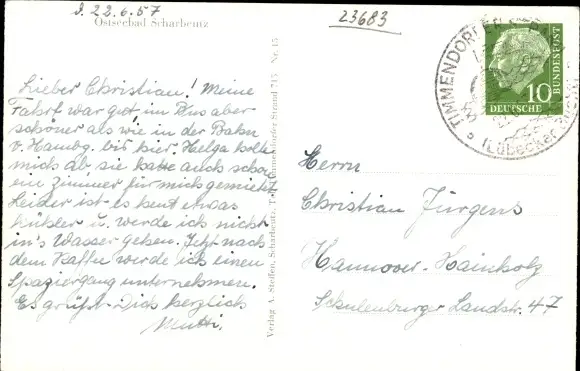 d. 22.6.57
Ostseebad Scharbeutz
23683
Lieber Christian! Meine
Fahrt war gut, im Bus aber
schöner als wie in der Bahn
v. Hambg. bis hier. Helga holte
mich ab, sie hatte auch schon
ein Zimmer für mich gemietet
Leider ist es heut etwas
kühler u. werde ich nicht
in's Wasser gehen. Jetzt nach
dem Kaffee werde ich einen
Spaziergang unternehmen.
Es grüßt Dich herzlich
Mutti.
Verlag A. Steifen, Scharbeutz, Timmendorfer Strand 745 Nr. 15
TIMMENDORFER
(Lübecker Bucht)
10
DEUTSCHE
BUNDESPOST
Herrn
Christian Jürgens
Hannover-Hainholz
Schulenburger Landstr. 47